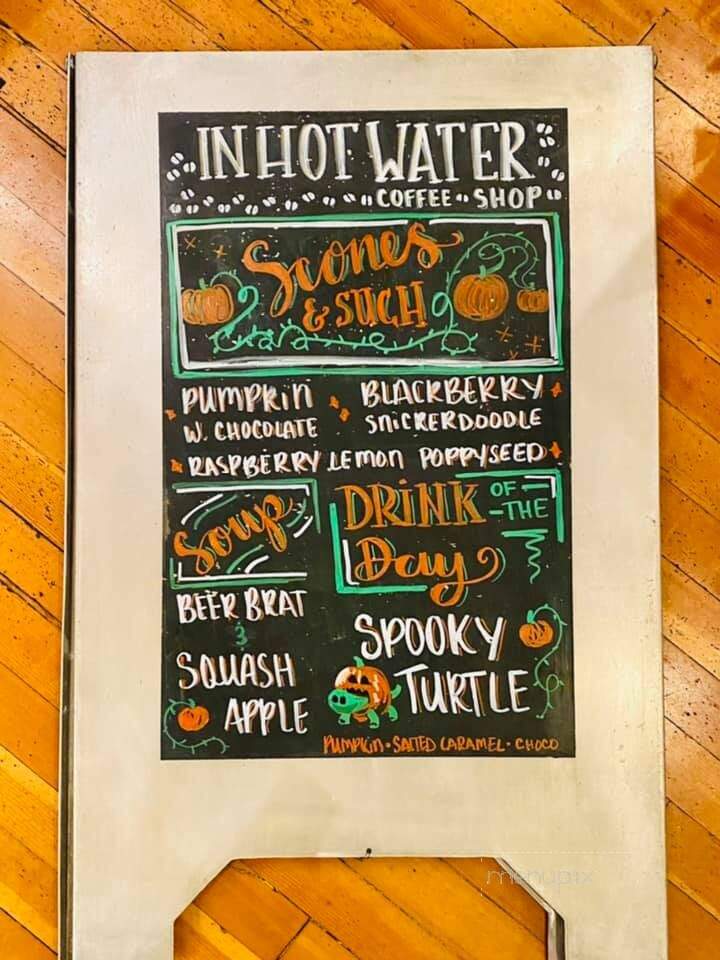 IN HOT WATER
COFFEE SHOP
Scones
& SUCH
PUMPKIN
W. CHOCOLATE
BLACKBERRY
SNICKERDOODLE
RASPBERRY LEMON POPPYSEED
Soup
BEER BRAT
&
SQUASH
APPLE
DRINK OF
-THE
Day
SPOOKY
TURTLE
PUMPKIN • SALTED CARAMEL • CHOCO
menupix